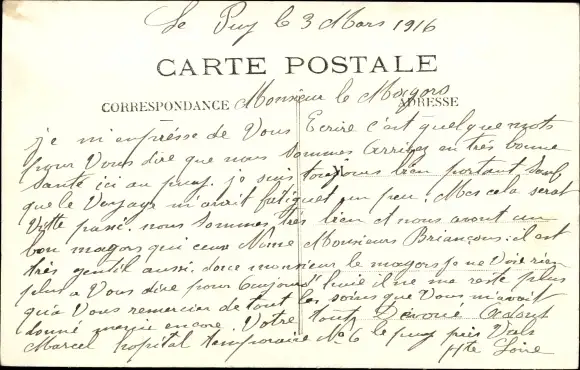 Le Puy le 3 Mars 1916
CARTE POSTALE
CORRESPONDANCE
ADRESSE
Monsieur le Magors
je m'enprésse de Vous Ecrire c'ait quelque mots
pour Vous dire que nous sommes arrivez en très bonne
santé ici au puy. je suis toujours bien portant Sauf
que le Voyage m'avait fatiguet un peu. Mes cela serat
Vitte passé. nous sommes très bien et nous avont un
bon magors qui ceux Nome Monsieurs Briançons. il est
très gentil aussi. donc monsieur le magors je ne Voir rien
plus a Vous dire pour aujourd'huie il ne me reste plus
qu'a Vous remercien de tout les soins que Vous m'avait
donné mercie encore. Votre tout Devoué
Marcel hopital temporaire No 6 le puy près Vals
Hte Loire